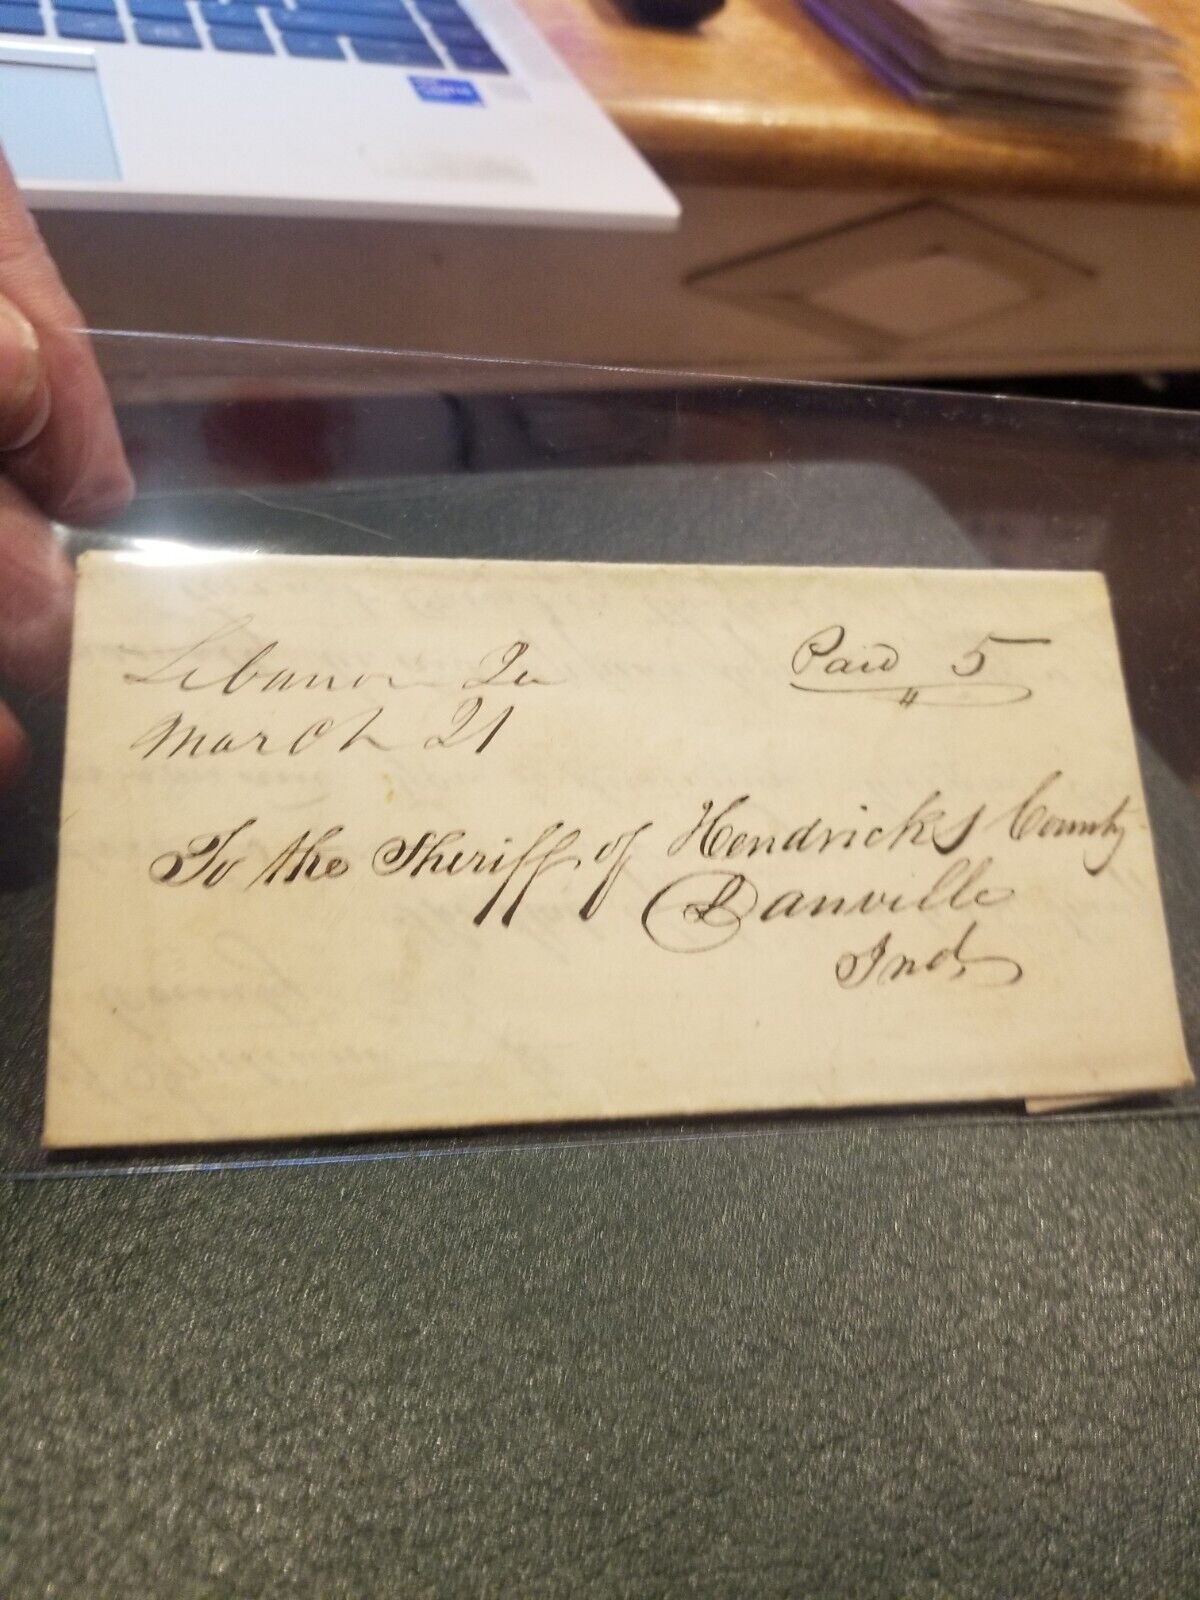 Lebanon Ia
March 21
Paid 5
To the Sheriff of Hendricks County
Danville
Ind,